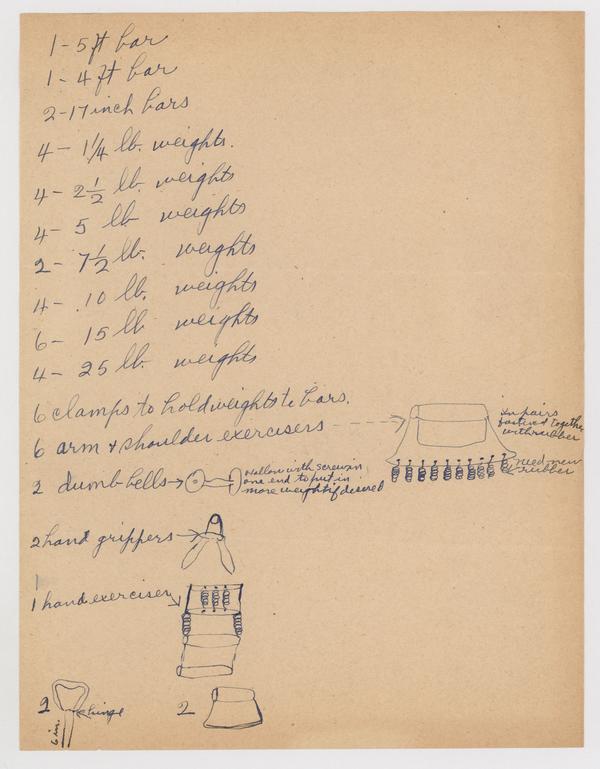 1 - 5 ft bar
1 - 4 ft bar
2 - 17 inch bars
4 - 1 1/4 lb. weights.
4 - 2 1/2 lb. weights
4 - 5 lb weights
2 - 7 1/2 lb. weights
4 - 10 lb. weights
6 - 15 lb weights
4 - 25 lb. weights
6 clamps to hold weights to bars.
6 arm & shoulder exercisers
in pairs
fastened together
with rubber
need new
rubber
2 dumb bells
Hollow with screw in
one end to put in
more weight if desired
2 hand grippers
1 hand exerciser
2
hinge
6 in.
2